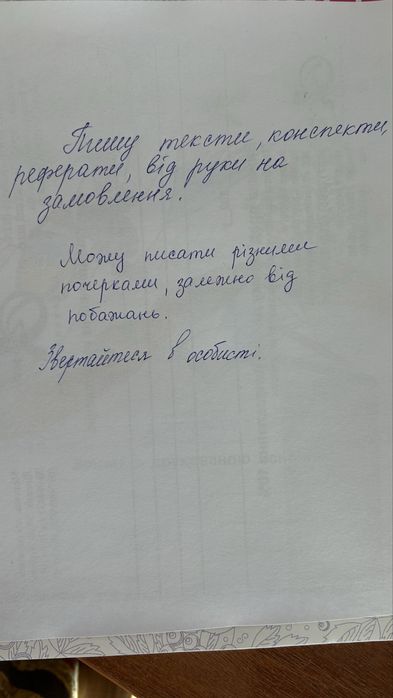 Пишу тексти, конспекти,
реферати, від руки на
замовлення.
Можу писати різними
почерками, залежно від
побажань.
Звертайтеся в особисті.